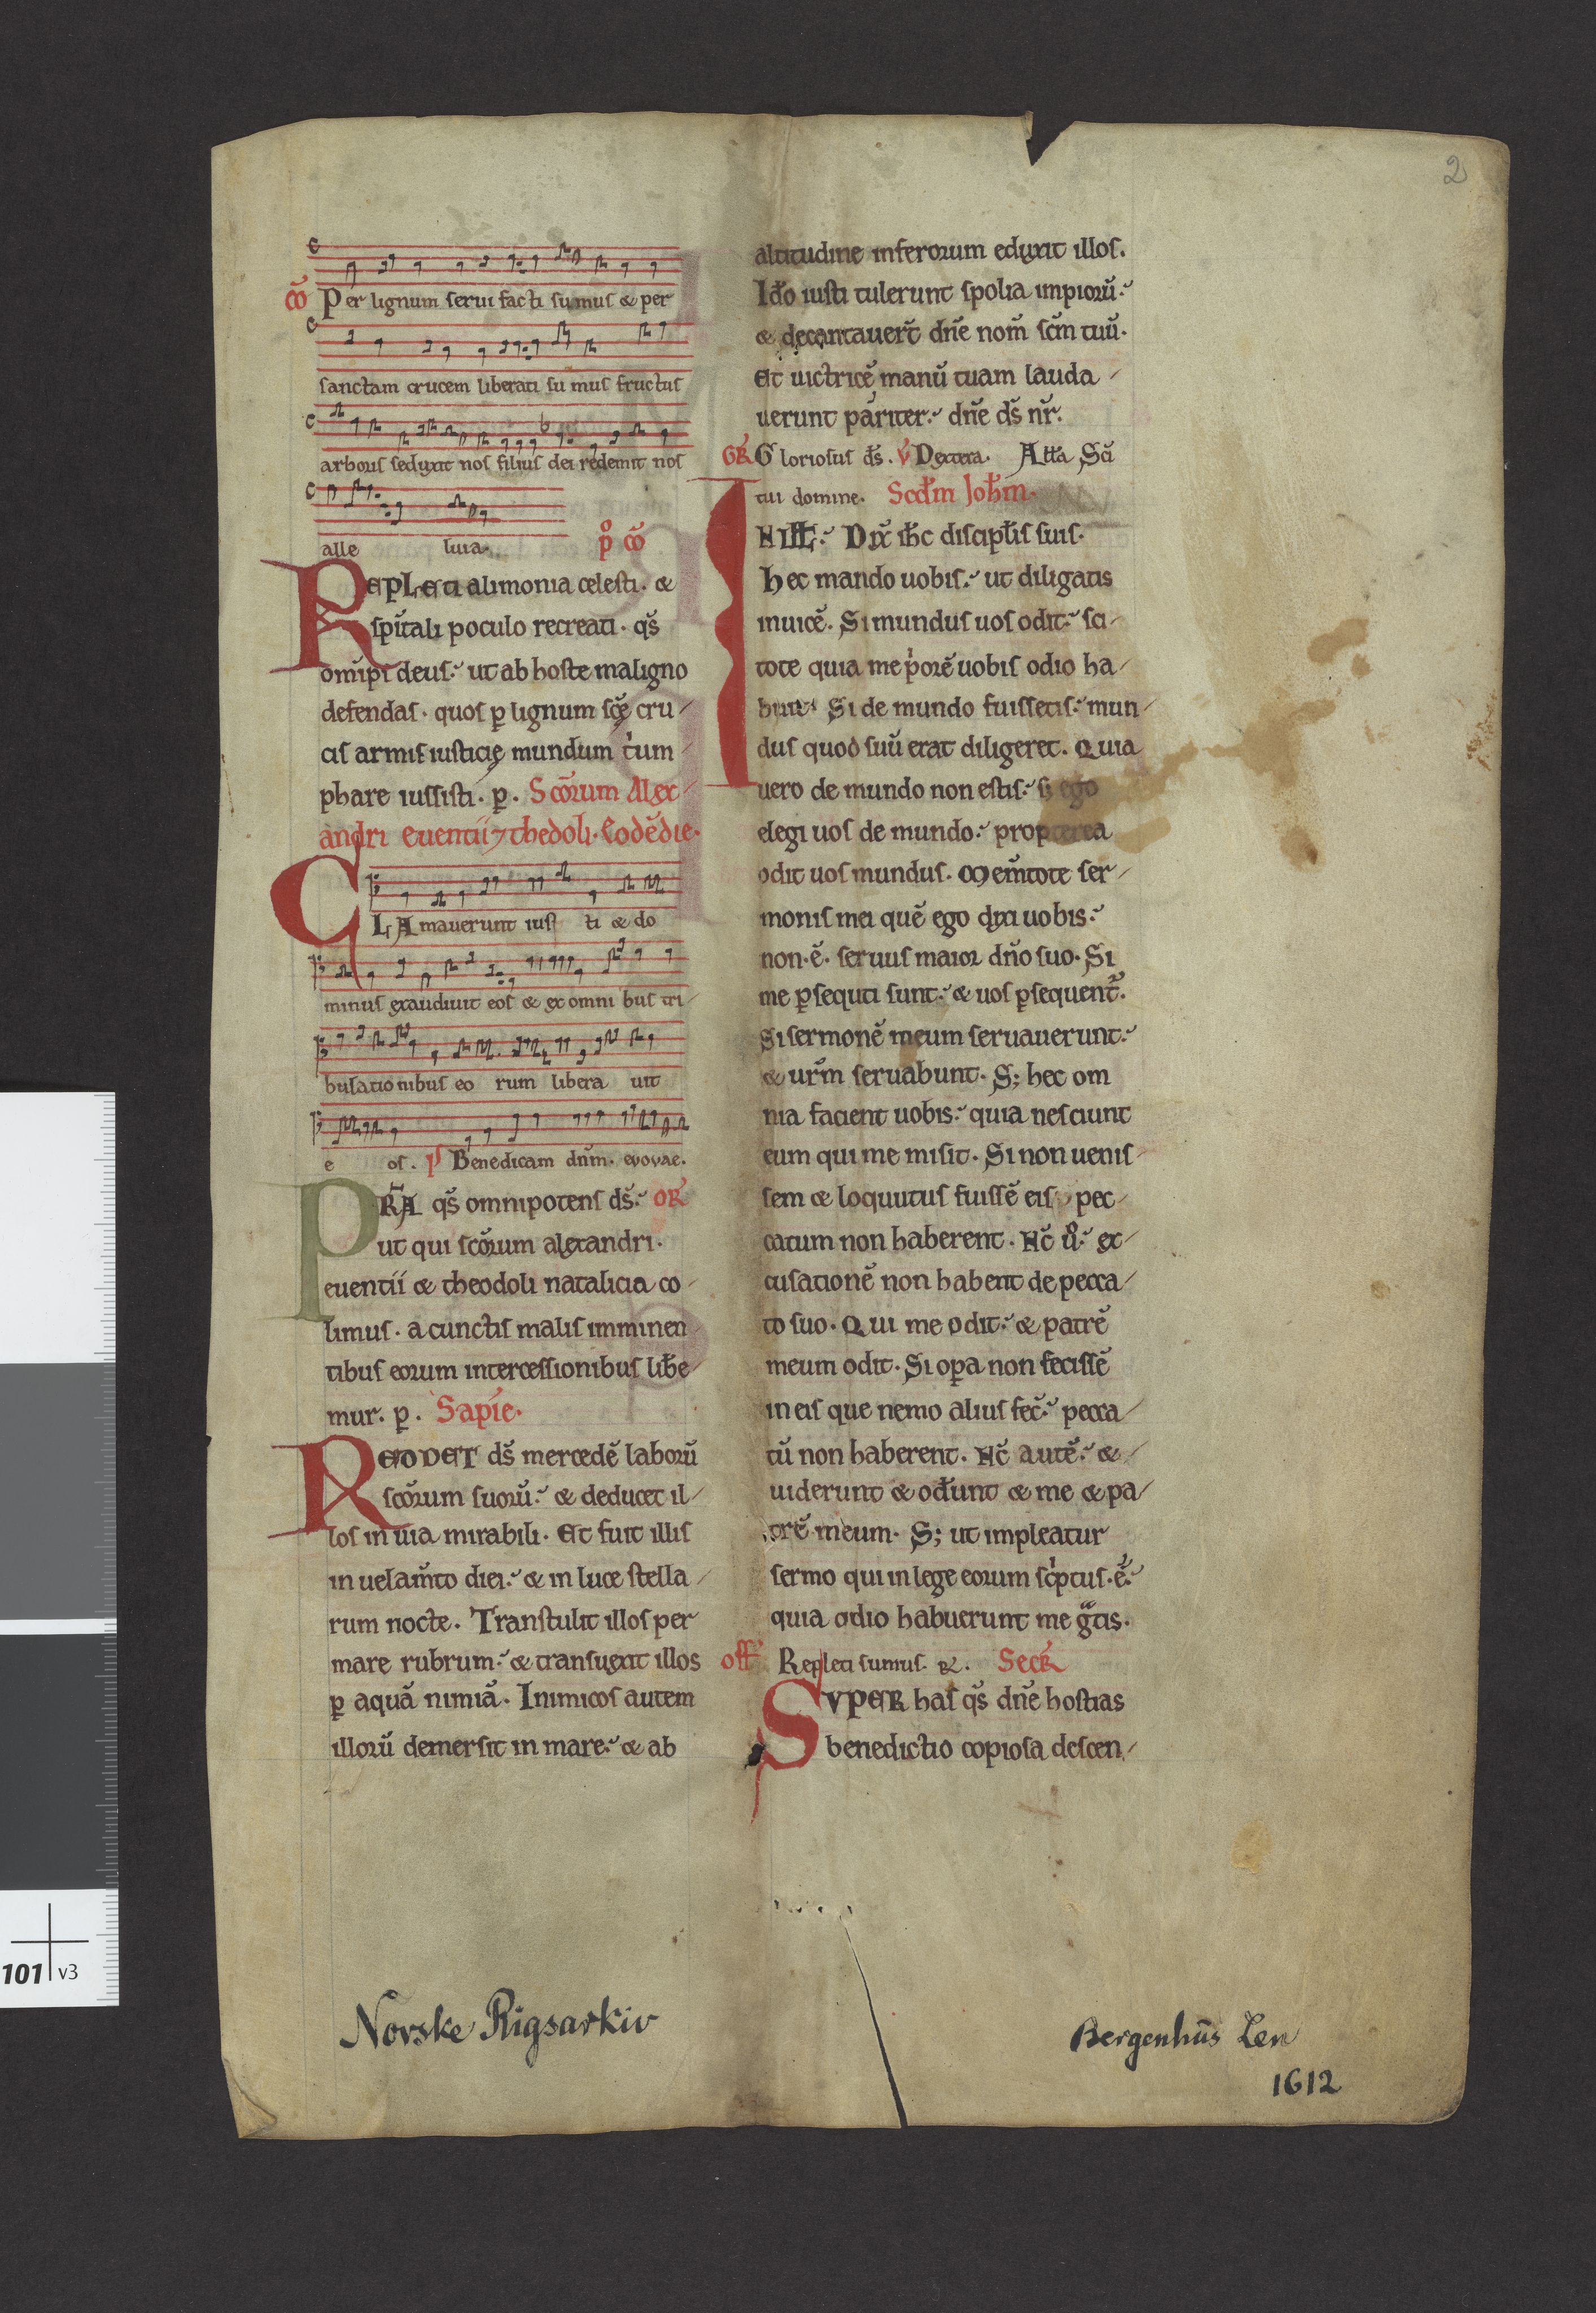 2
cō Per lignum serui facti sumus & per
sanctam crucem liberati su mus fructus
arboris seduxit nos filius dei redemit nos
alle luia. p̊ cō
Repleti alimonia celesti. &
sp̄itali poculo recreati. qs̄
om̄ip̄i deus. ut ab hoste maligno
defendas. quos ꝑ lignum sc̄ę cru
cis armis iusticię mundum t'um
phare iussisti. ꝑ. Scōrum Alex
andri euentii ⁊ thedoli. Eodē die.
CLAmauerunt ius ti & do
minus exaudiuit eos & ex omni bus tri
bulationibus eo rum libera uit
e os. p̄s Benedicam dn̄m. evovae.
PR̄A qs̄ omnipotens ds̄. OR̄
ut qui scōrum alexandri.
euentii & theodoli natalicia co
limus. a cunctis malis imminen
tibus eorum intercessionibus lib̄e
mur. ꝑ. Sapīe.
REDDET ds̄ mercedē laborū
scōrum suorū. & deducet il
los in uia mirabili. Et fuit illis
in uelam̄to diei. & in luce stella
rum nocte. Transtulit illos per
mare rubrum. & transuexit illos
ꝑ aquā nimiā. Inimicos autem
illorū demersit in mare. & ab
altitudine inferorum eduxit illos.
Id̄o iusti tulerunt spolia impiorū.
& decantauer̄t dn̄e nom̄ sc̄m tuū.
Et uictricē manū tuam lauda
uerunt pariter. dn̄e ds̄ nr̄.
GR̄ Gloriosus ds̄. v̄ Dextera. Alła Sc̄i
tui domine. Scđm Joħm.
IN ILŁ. Dix̄ ih̄c disciplīs suis.
hec mando uobis. ut diligatis
inuicē. Si mundus uos odit. sci
tote quia me p'orē uobis odio ha
buit. Si de mundo fuissetis. mun
dus quod suū erat diligeret. Quia
uero de mundo non estis. sꝫ ego
elegi uos de mundo. propterea
odit uos mundus. Mem̄tote ser
monis mei quē ego dixi uobis.
non .ē. seruus maior dn̄o suo. Si
me ꝑsequti sunt. & uos ꝑsequent̄.
Si sermonē meum seruauerunt.
& ur̄m seruabunt. S; hec om
nia facient uobis. quia nesciunt
eum qui me misit. Si non uenis
sem & loquutus fuissē eis pec
catum non haberent. Nc̄ ů. ex
cusationē non habent de pecca
to suo. Qui me odit. & patrē
meum odit. Si oꝑa non fecissē
in eis que nemo alius fec̄. pecca
tū non haberent. Nc̄ autē. &
uiderunt & od̄unt & me & pa
trē meum. S; ut impleatur
sermo qui in lege eorum sc'ptus .ē.
quia odio habuerunt me g̃tis.
off̄ Repleti sumus. R. Secr̄
SVPER has qs̄ dn̄e hostias
benedictio copiosa descen
Norske Rigsarkiv
Bergenhūs Len
1612
101 v3